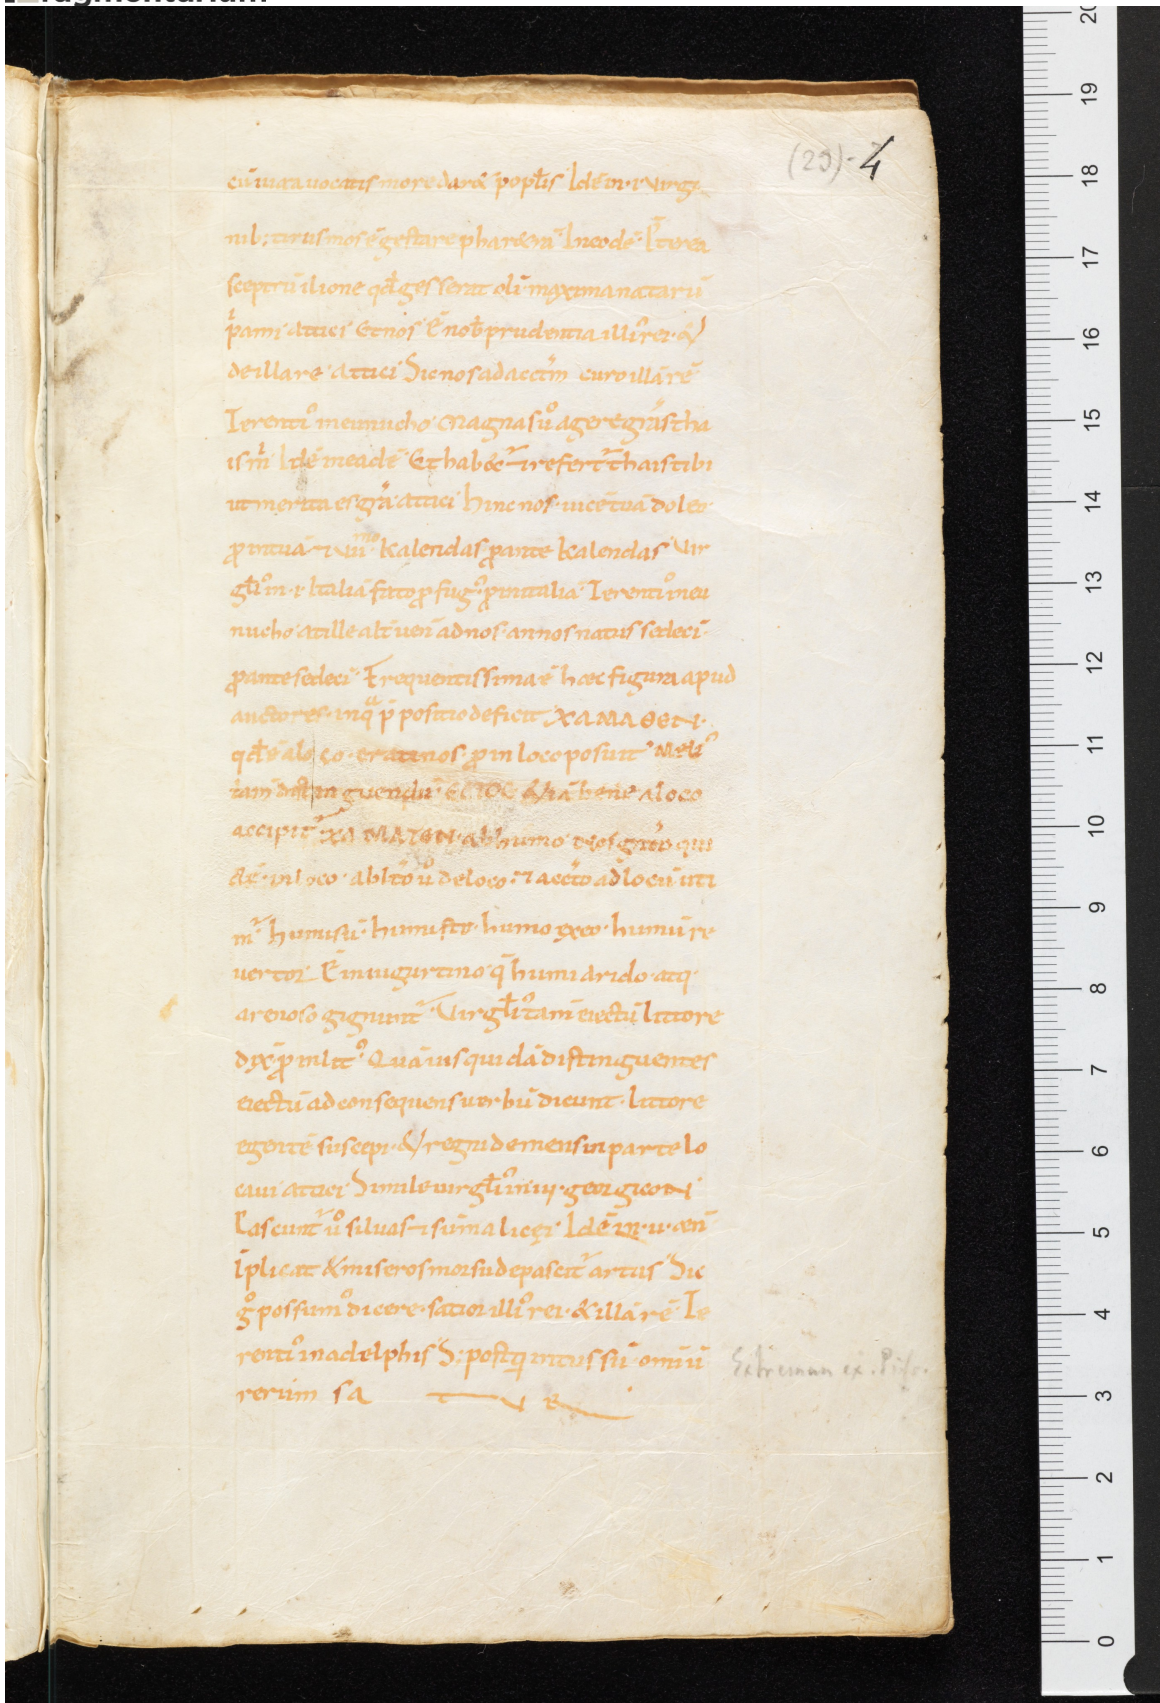 ragmentarium
(29)-4
cū iura uocatis more dar& poplis Idē in ·i· Virgi
nib; tiriis mos ē gestare phar&rā Ineodē P̄terea
sceptrū ilione qđ gesserat olī maxima natarū
pami attici Et nos Ē nob prudentia illi rei &
de illa re attici Sic nos ad acctm curo illā rē
Terenti in eunucho Magnas ů agere grās tha
is m Idē in eadē Et habēc refert thais tibi
ut merita es grā attici Hinc nos uicē tuā doleo
p in tuā Kalendas p ante kalendas Vir
gł in ·i· Italiā fato pfug p in italiā Terenti in eu
nucho at ille alt uen ad nos annos natus sedecī
p ante sedecī Frequentissima ē hæc figura apud
auctores in q p positio deficit ΧΑΜΑΘΕΝ
qđ ē a loco eratinos p in loco posuit Meli
tam distinguendū bene a loco
accipit ΧΑ ΜΑΤΟΝ ab humo n̄os qui
in loco ablto ů de loco accto ad locū uti
m humi sū humi sto humo exeo humū re
uertor in iugurtino q humi arido atq
arenoso gignunt Virgł tam eiectū littore
dix p in lit Quāuis quidā distinguentes
eiectū ad consequens uerbū dicunt littore
egentē suscepi & regni demens in parte lo
caui attici Simile uirgł in iii georgicon
Pascunt ů siluas sūma licęi Idē in u æn
Iplicat & miseros morsu depascit artus Sic
g possum dicere satior illi rei & illā rē Te
renti in adelphis S; postq intus sū omiū
rerum sa T V R
Extremum ex
20
19
18
17
16
15
14
13
12
11
10
9
8
7
6
5
4
3
2
1
0